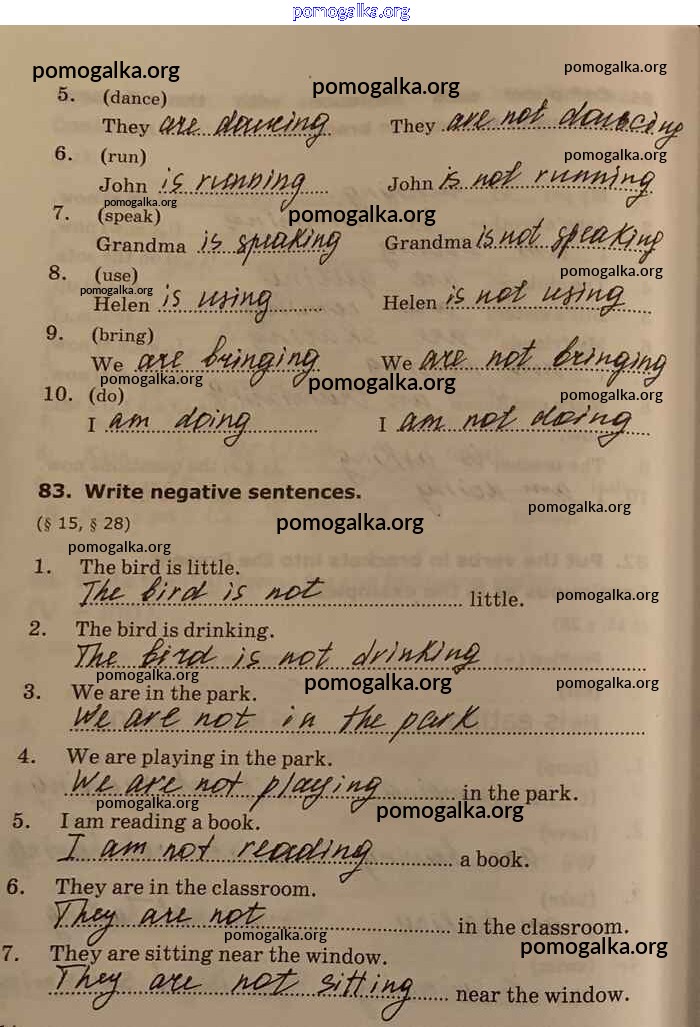 pomogalka.org
pomogalka.org pomogalka.org pomogalka.org
5. (dance)
They are dancing They are not dancing
6. (run) pomogalka.org
John is running John is not running
pomogalka.org
7. (speak) pomogalka.org
Grandma is speaking Grandma is not speaking
8. (use) pomogalka.org
pomogalka.org
Helen is using Helen is not using
9. (bring)
We are bringing We are not bringing
pomogalka.org pomogalka.org
10. (do) pomogalka.org
I am doing I am not doing
83. Write negative sentences.
pomogalka.org
(§ 15, § 28) pomogalka.org
pomogalka.org
1. The bird is little.
The bird is not little. pomogalka.org
2. The bird is drinking.
The bird is not drinking
pomogalka.org pomogalka.org
3. We are in the park.
We are not in the park
4. We are playing in the park.
We are not playing in the park.
pomogalka.org pomogalka.org
5. I am reading a book.
I am not reading a book.
6. They are in the classroom.
They are not in the classroom.
pomogalka.org pomogalka.org
7. They are sitting near the window.
They are not sitting near the window.